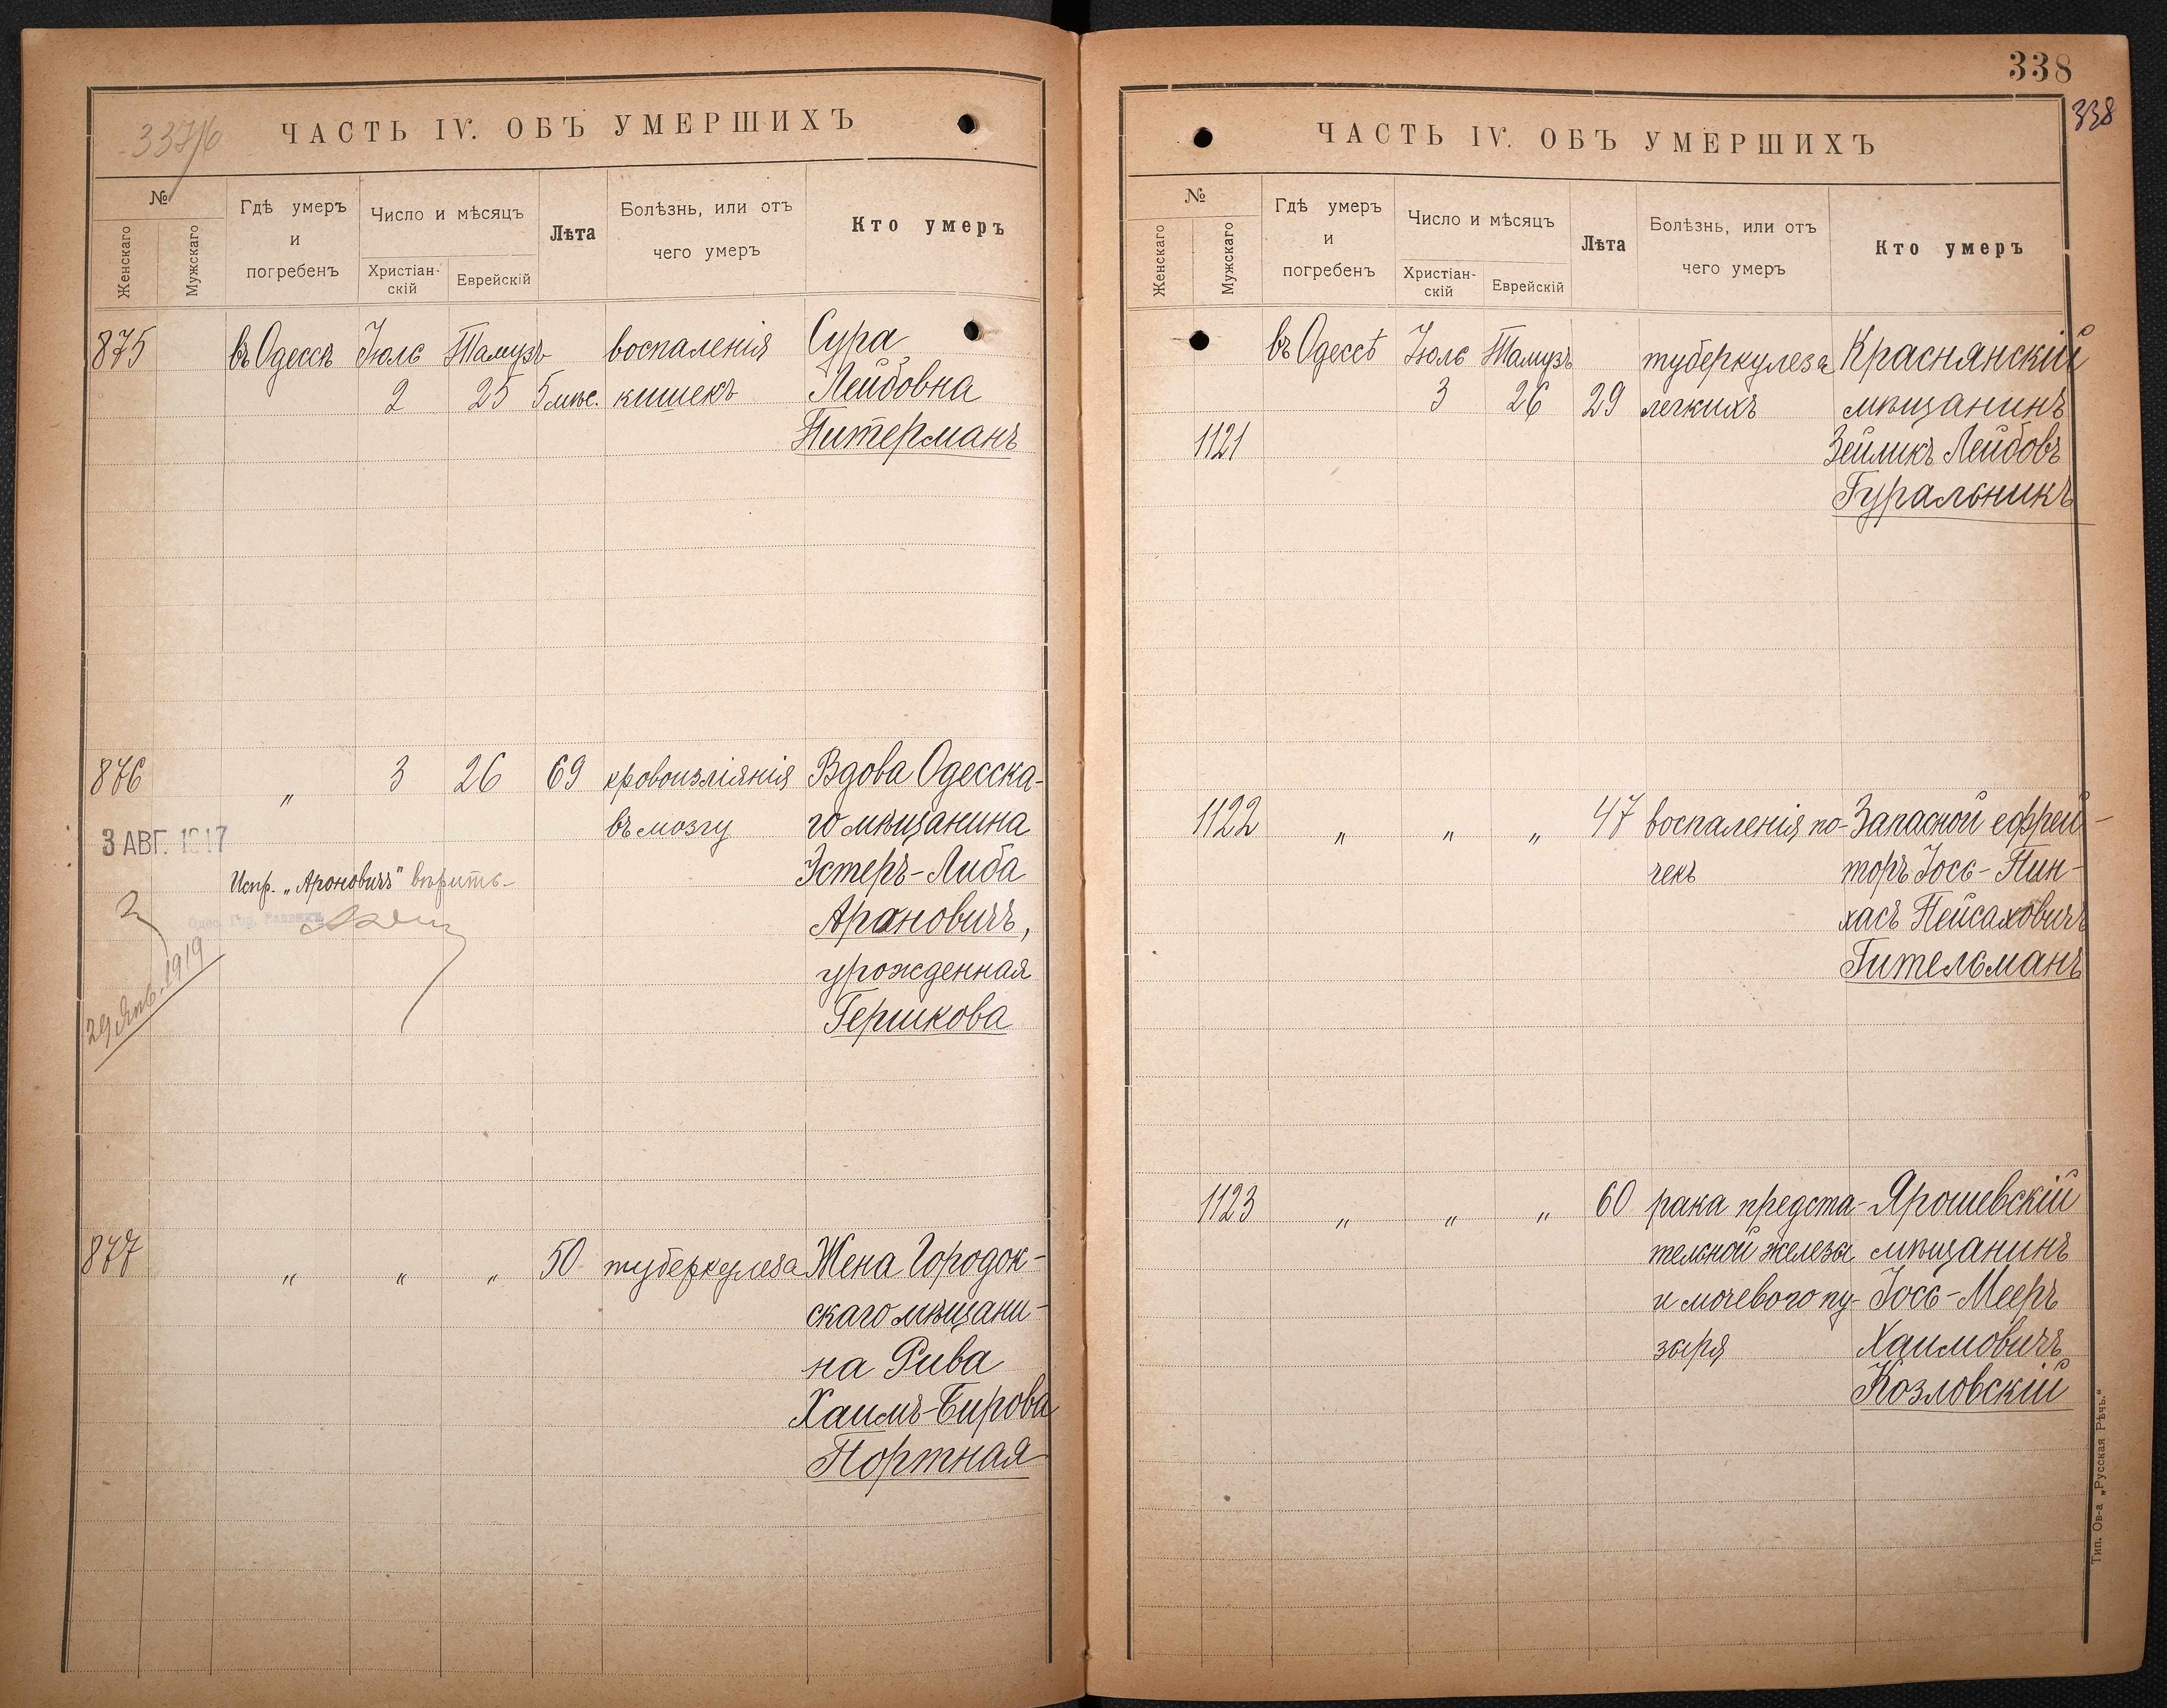 ЧАСТЬ IV. ОБЪ УМЕРШИХЪ
№
Женскаго
Мужскаго
Гдѣ умеръ
и
погребенъ
Число и мѣсяцъ
Христіан-
скій
Еврейскій
Лѣта
Болѣзнь, или отъ
чего умеръ
Кто умеръ
875 въ Одессѣ Іюль Тамузъ воспаленія Сура
2 25 5 мѣс. кишекъ Лейбовна
Питерманъ
876 „ 3 26 69 кровоизліянія Вдова Одесска-
въ мозгу го мѣщанина
3 АВГ. 1917
Испр. „Ароновичъ" вѣрить-
Эстеръ-Либа
Арановичъ,
29 Янв. 1919
урожденная
Гершкова
877 „ „ „ 50 туберкулеза Жена Городок-
скаго мѣщани-
на Рива
Хаимъ-Бирова
Портная
338
338
ЧАСТЬ IV. ОБЪ УМЕРШИХЪ
№
Женскаго
Мужскаго
Гдѣ умеръ
и
погребенъ
Число и мѣсяцъ
Христіан-
скій
Еврейскій
Лѣта
Болѣзнь, или отъ
чего умеръ
Кто умеръ
въ Одессѣ Іюль Тамузъ туберкулеза Краснянскій
3 26 29 легкихъ мѣщанинъ
1121 Зейликъ Лейбовъ
Гуральникъ
1122 „ „ „ 47 воспаленія по- Запасной ефрей-
чекъ торъ Іось-Пин-
хасъ Пейсаховичъ
Гительманъ
1123 „ „ „ 60 рака предста- Ярошевскій
тельной железы мѣщанинъ
и мочевого пу- Іось-Мееръ
зыря Хаимовичъ
Козловскій
Тип. Ов-а „Русская Рѣчь."